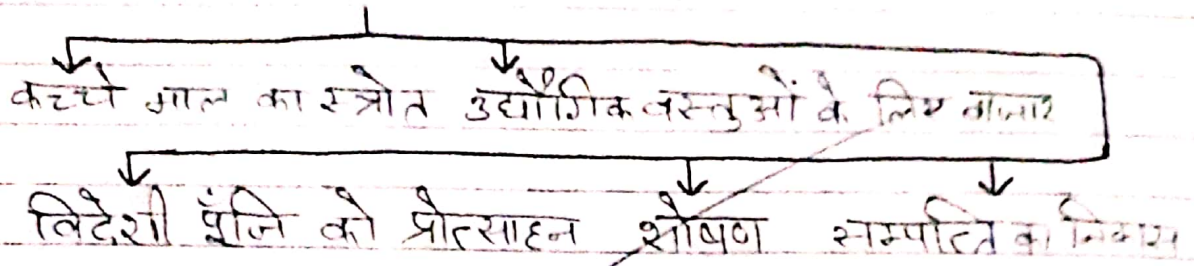 कच्चे माल का स्त्रोत उद्यौगिक वस्तुओं के लिए बाजार
विदेशी पूँजि को प्रोत्साहन शोषण सम्पत्ति का निकास